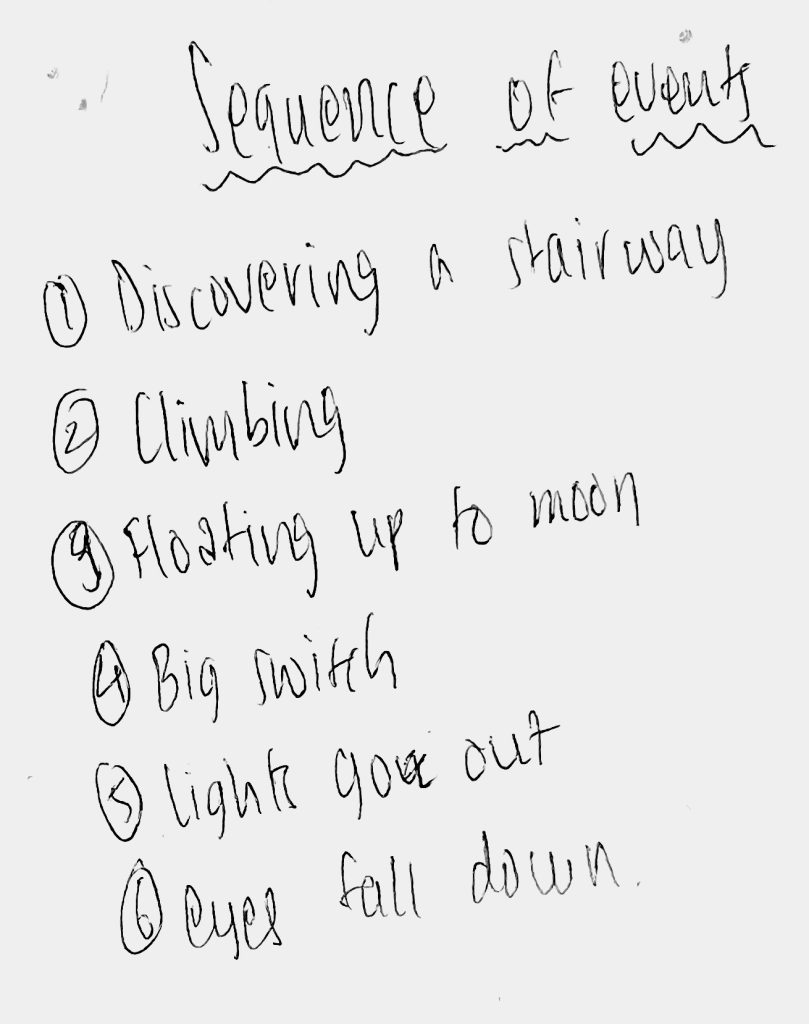 Sequence of events
① Discovering a stairway
② Climbing
③ Floating up to moon
④ Big switch
⑤ lights goe out
⑥ eyes fall down.